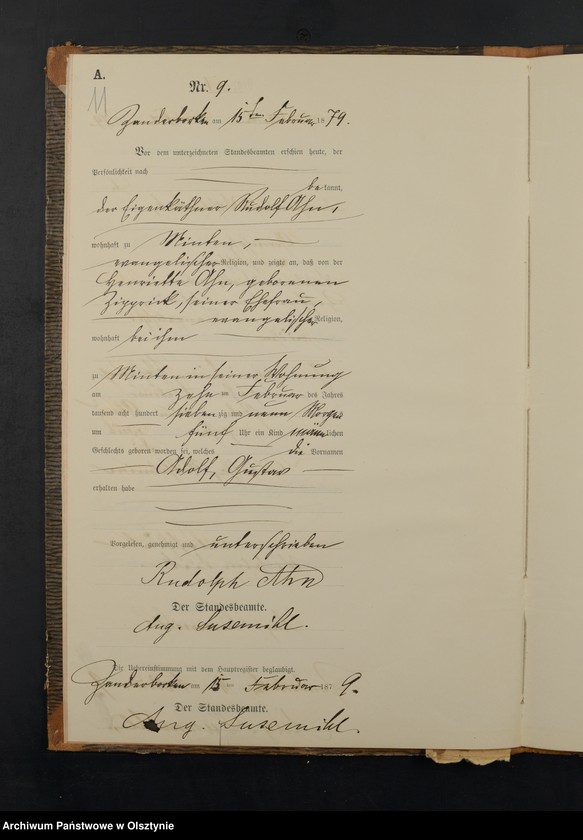 A.
11
Nr. 9.
Zanderborken am 15ten Februar 1879.
Vor dem unterzeichneten Standesbeamten erschien heute, der
Persönlichkeit nach
bekannt,
der Eigenkäthner Rudolf Ahn,
wohnhaft zu Minten,
evangelischer Religion, und zeigte an, daß von der
Henriette Ahn, geborenen
Zipprick, seiner Ehefrau,
evangelischer Religion,
wohnhaft bei ihm
zu Minten in seiner Wohnung
am zehn ten Februar des Jahres
tausend acht hundert sieben zig und neun Morgens
um fünf Uhr ein Kind männlichen
Geschlechts geboren worden sei, welches die Vornamen
Adolf, Gustav
erhalten habe
Vorgelesen, genehmigt und unterschrieben
Rudolph Ahn
Der Standesbeamte.
Aug. Susemihl.
Die Uebereinstimmung mit dem Hauptregister beglaubigt.
Zanderborken am 15 ten Februar 1879.
Der Standesbeamte.
Aug. Susemihl.
Archiwum Państwowe w Olsztynie